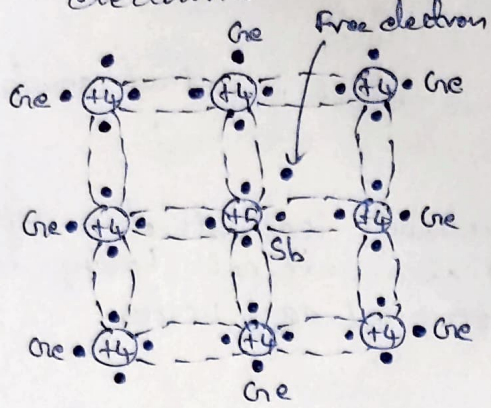 Free electron
Ge
Ge +4 +4 +4 Ge
Ge +4 +5 +4 Ge
Sb
Ge +4 +4 +4 Ge
Ge